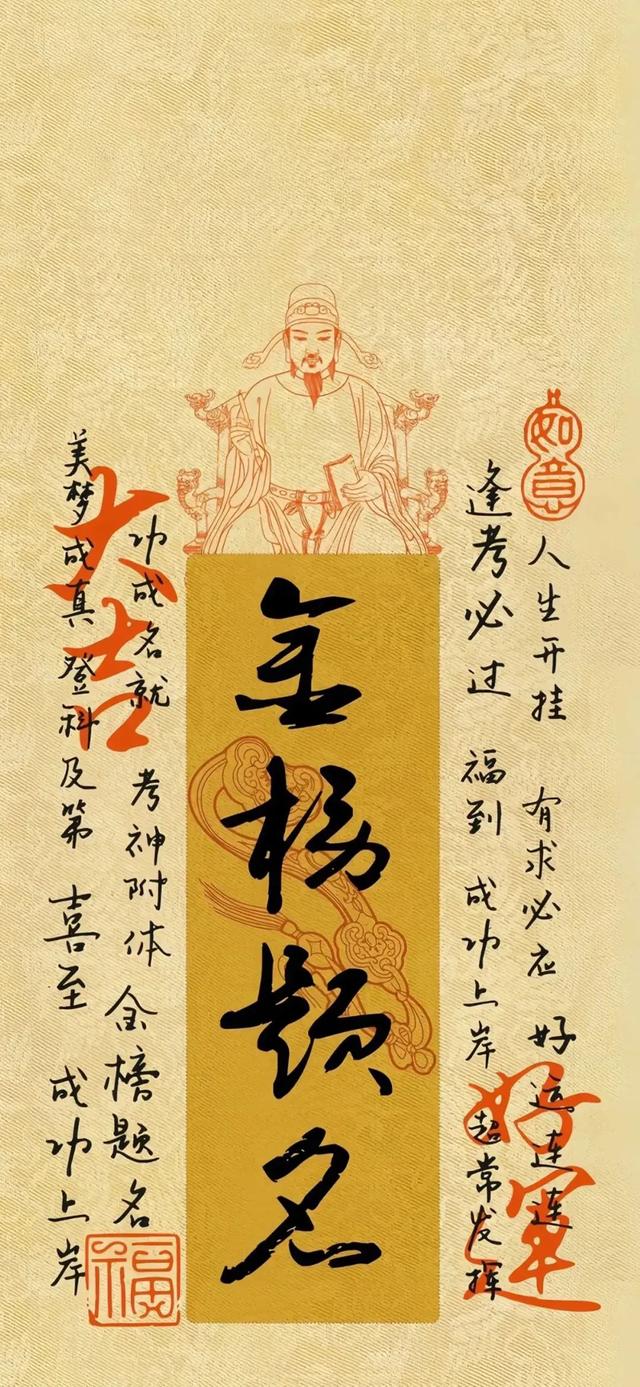 如意
人生开挂 有求必应 好运连连
逢考必过 福到 成功上岸 超常发挥
好运
金榜题名
功成名就 考神附体 金榜题名
大吉
美梦成真 登科及第 喜至 成功上岸
福